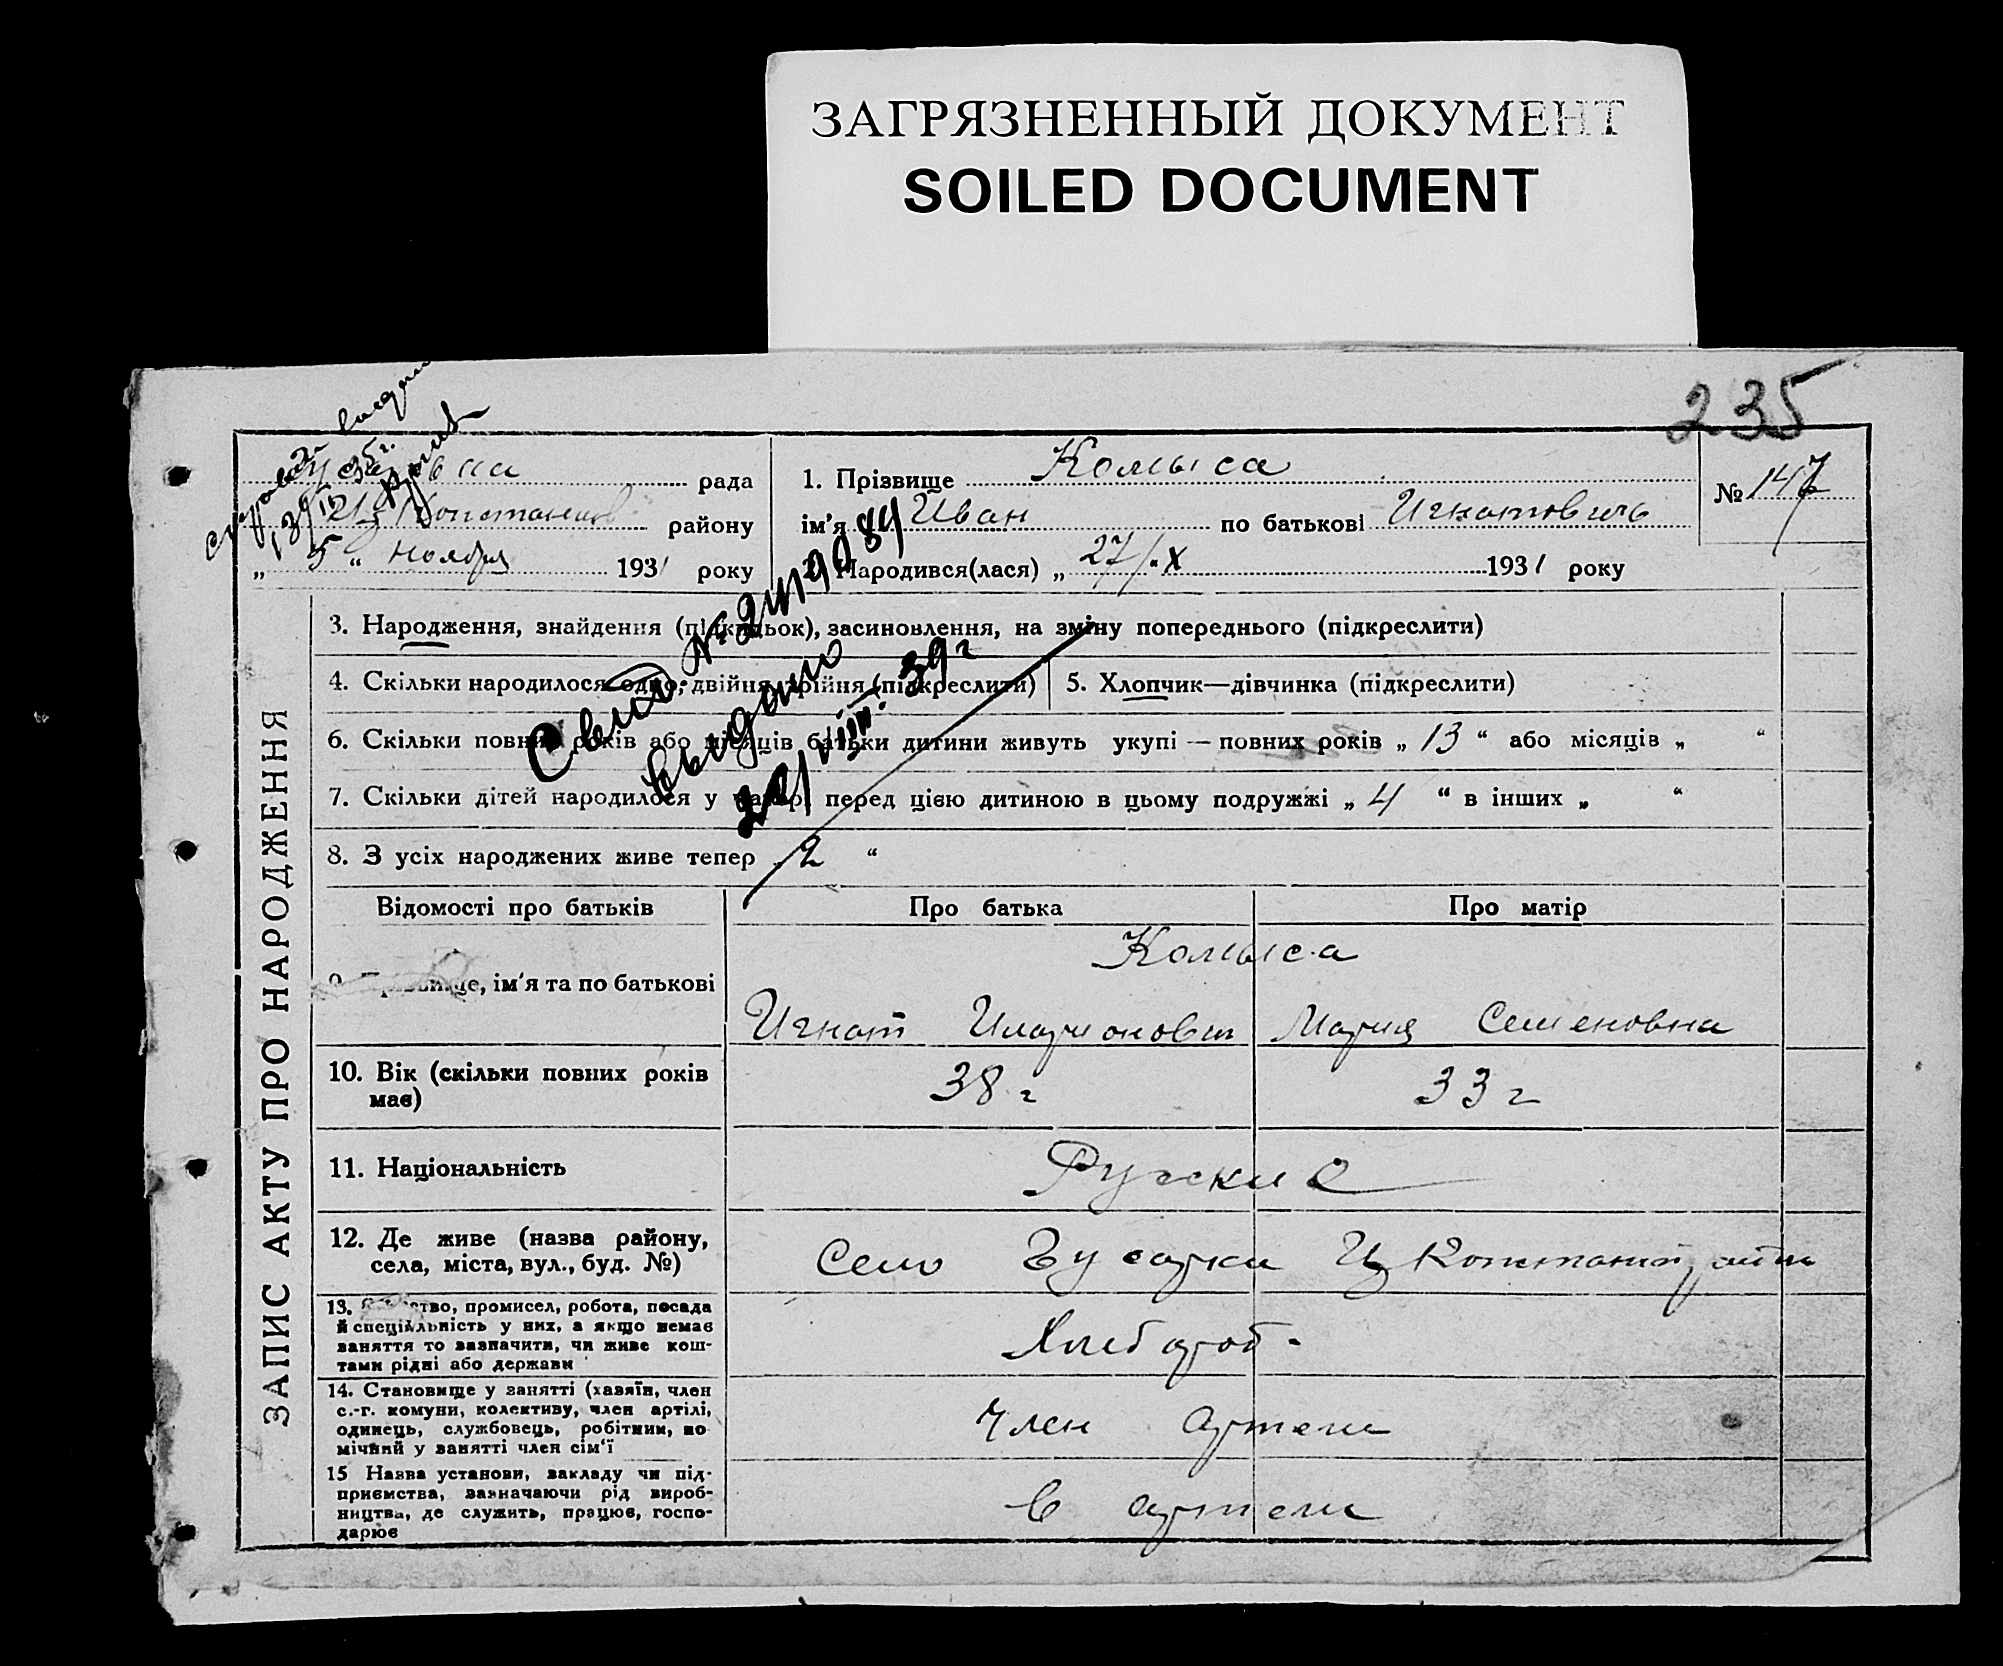 ЗАГРЯЗНЕННЫЙ ДОКУМЕНТ
SOILED DOCUMENT
235
рада
району
„ 5 “ ноября 1931 року
1. Прізвище Комыса
ім'я Иван по батькові Игнатович
Народився(лася) „ 27/X 1931 року
№ 147
Свид. №
выдано
VIII 39 г
ЗАПИС АКТУ ПРО НАРОДЖЕННЯ
3. Народження, знайдення (підкидьок), засиновлення, на зміну попереднього (підкреслити)
4. Скільки народилося одно, двійня, трійня (підкреслити)
5. Хлопчик—дівчинка (підкреслити)
6. Скільки повних років або місяців батьки дитини живуть укупі — повних років „ 13 “ або місяців „ “
7. Скільки дітей народилося у матері перед цією дитиною в цьому подружжі „ 4 “ в інших „ “
8. З усіх народжених живе тепер „ 2 “
Відомості про батьків Про батька Про матір
Комыса
9. Прізвище, ім'я та по батькові
Игнат Иларионович Мария Семеновна
10. Вік (скільки повних років має)
38 г 33 г
11. Національність
Русские
12. Де живе (назва району,
села, міста, вул., буд. №)
Село
13. промисел, робота, посада
й спеціяльність у них, а якщо немає
заняття то зазначити, чи живе кош-
тами рідні або держави
Хлебороб.
14. Становище у занятті (хазяїн, член
с.-г. комуни, колективу, член артілі,
одинець, службовець, робітник, по-
мічний у занятті член сім'ї
Член артели
15 Назва установи, закладу чи під-
приємства, зазначаючи рід вироб-
ництва, де служить, працює, госпо-
дарює
в артели